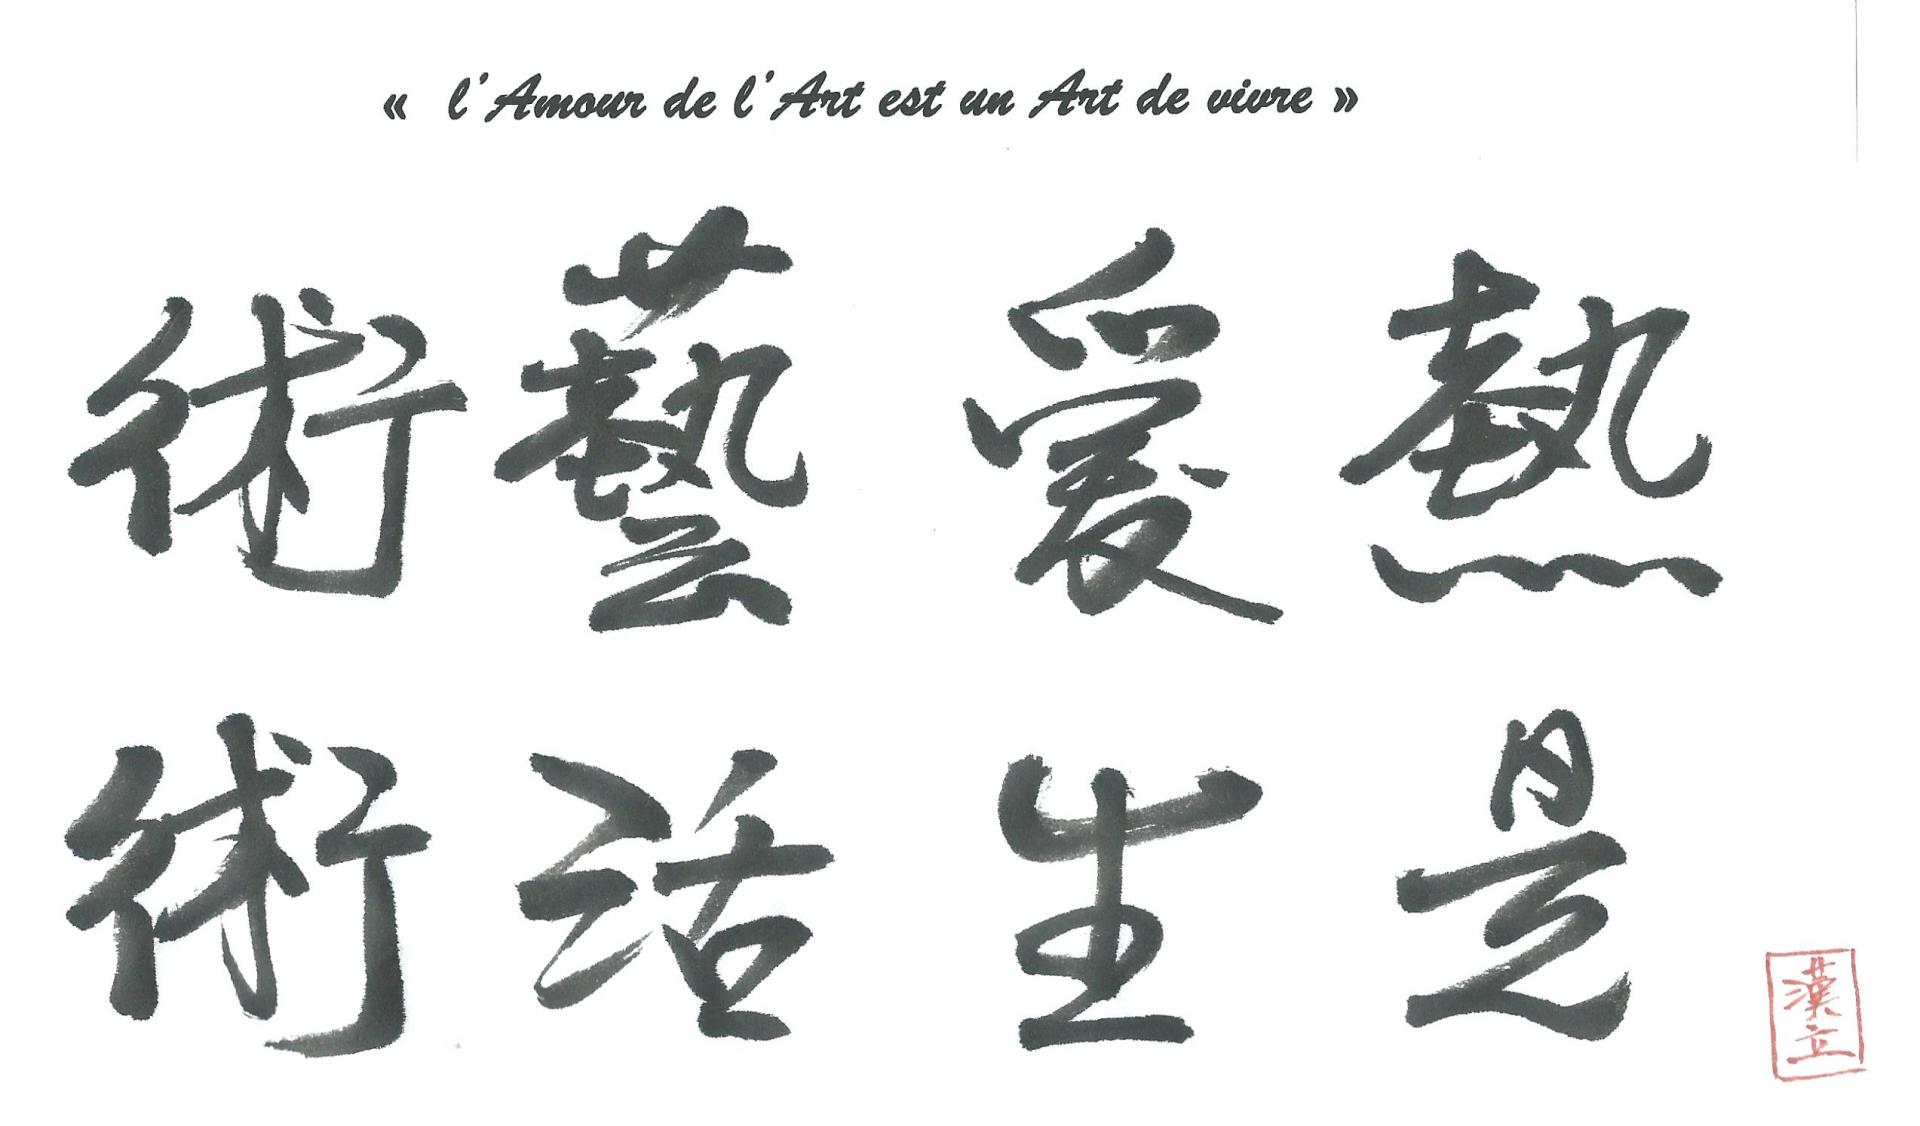 « l'Amour de l'Art est un Art de vivre »
熱愛藝術
是生活術
漢立